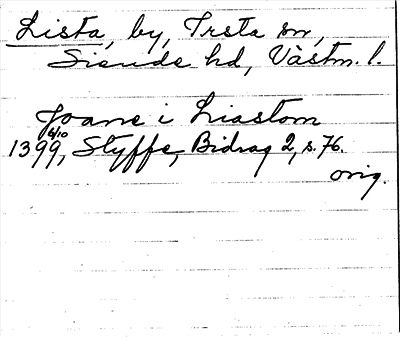 Lista, by, Irsta sn,
Siende hd, Västm. l.
Joane i Liastom
1399 6/10, Styffe, Bidrag 2, s. 76.
orig.